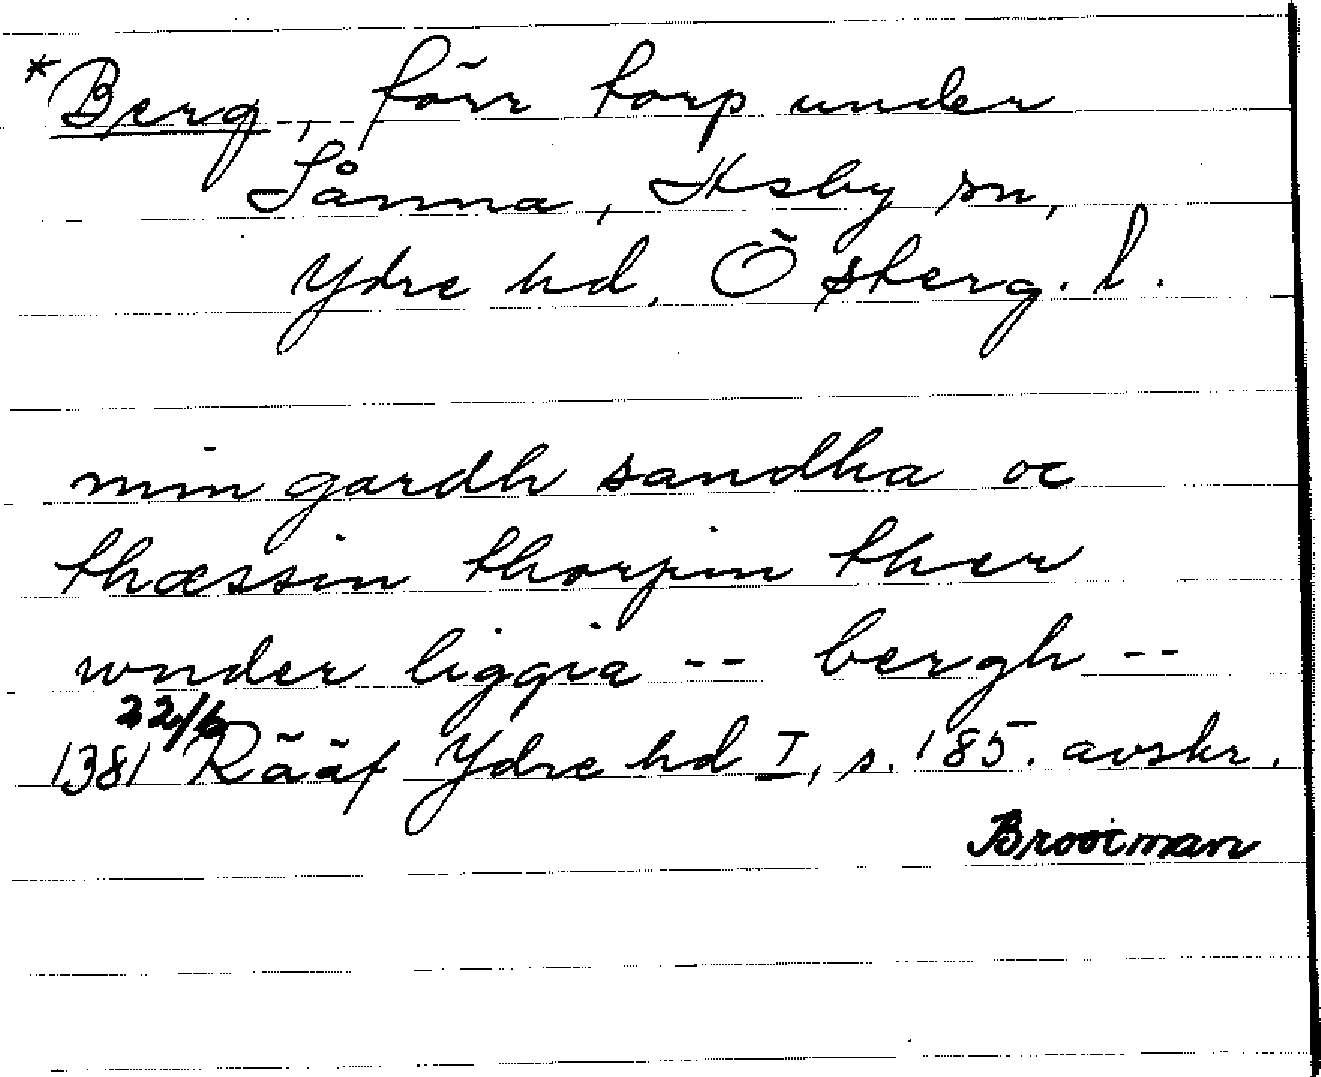 *Berg, förr torp under
Sånna, Asby sn,
Ydre hd, Österg. l.
min gardh sandha oc
thæssin thorpin ther
wnder liggia -- bergh --
22/6
1381 Rääf Ydre hd I, s. 185. avskr.
Brooiman